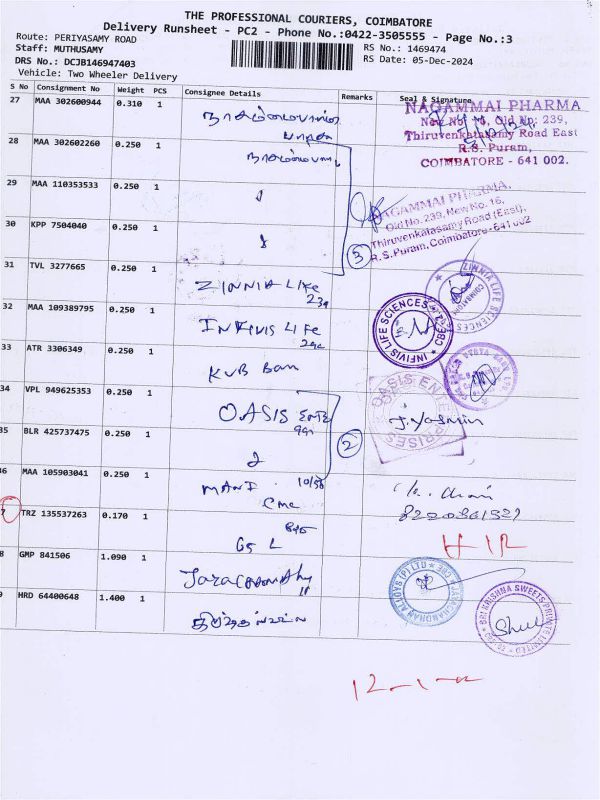 THE PROFESSIONAL COURIERS, COIMBATORE
Delivery Runsheet - PC2 - Phone No.:0422-3505555 - Page No.:3
Route: PERIYASAMY ROAD
RS No.: 1469474
Staff: MUTHUSAMY
RS Date: 05-Dec-2024
DRS No.: DCJB146947403
Vehicle: Two Wheeler Delivery
S No Consignment No Weight PCS Consignee Details Remarks Seal & Signature
27 MAA 302600944 0.310 1
NAGAMMAI PHARMA
New No: 16, Old No: 239,
Thiruvenkatasamy Road East
R.S. Puram,
COIMBATORE - 641 002.
28 MAA 302602260 0.250 1
29 MAA 110353533 0.250 1
NAGAMMAI PHARMA,
Old No. 239, New No. 16,
Thiruvenkatasamy Road (East),
R.S. Puram, Coimbatore - 641 002
30 KPP 7504040 0.250 1
3
31 TVL 3277665 0.250 1 ZINNIA LIFE
239
ZINNIA LIFE SCIENCES
32 MAA 109389795 0.250 1 INFIVIS LIFE
INFIVIS LIFE SCIENCES
CBE
33 ATR 3306349 0.250 1 KVB Ban
34 VPL 949625353 0.250 1 OASIS ENTE
OASIS ENTERPRISES
J. Yasmin
35 BLR 425737475 0.250 1
2
36 MAA 105903041 0.250 1 MANI 10/56
CMC
8220361527
7 TRZ 135537263 0.170 1 GSL
8 GMP 841506 1.090 1
JAYACHANDHRAN ALLOYS (P) LTD
CBE
9 HRD 64400648 1.400 1
SRI KRISHNA SWEETS PRIVATE LIMITED